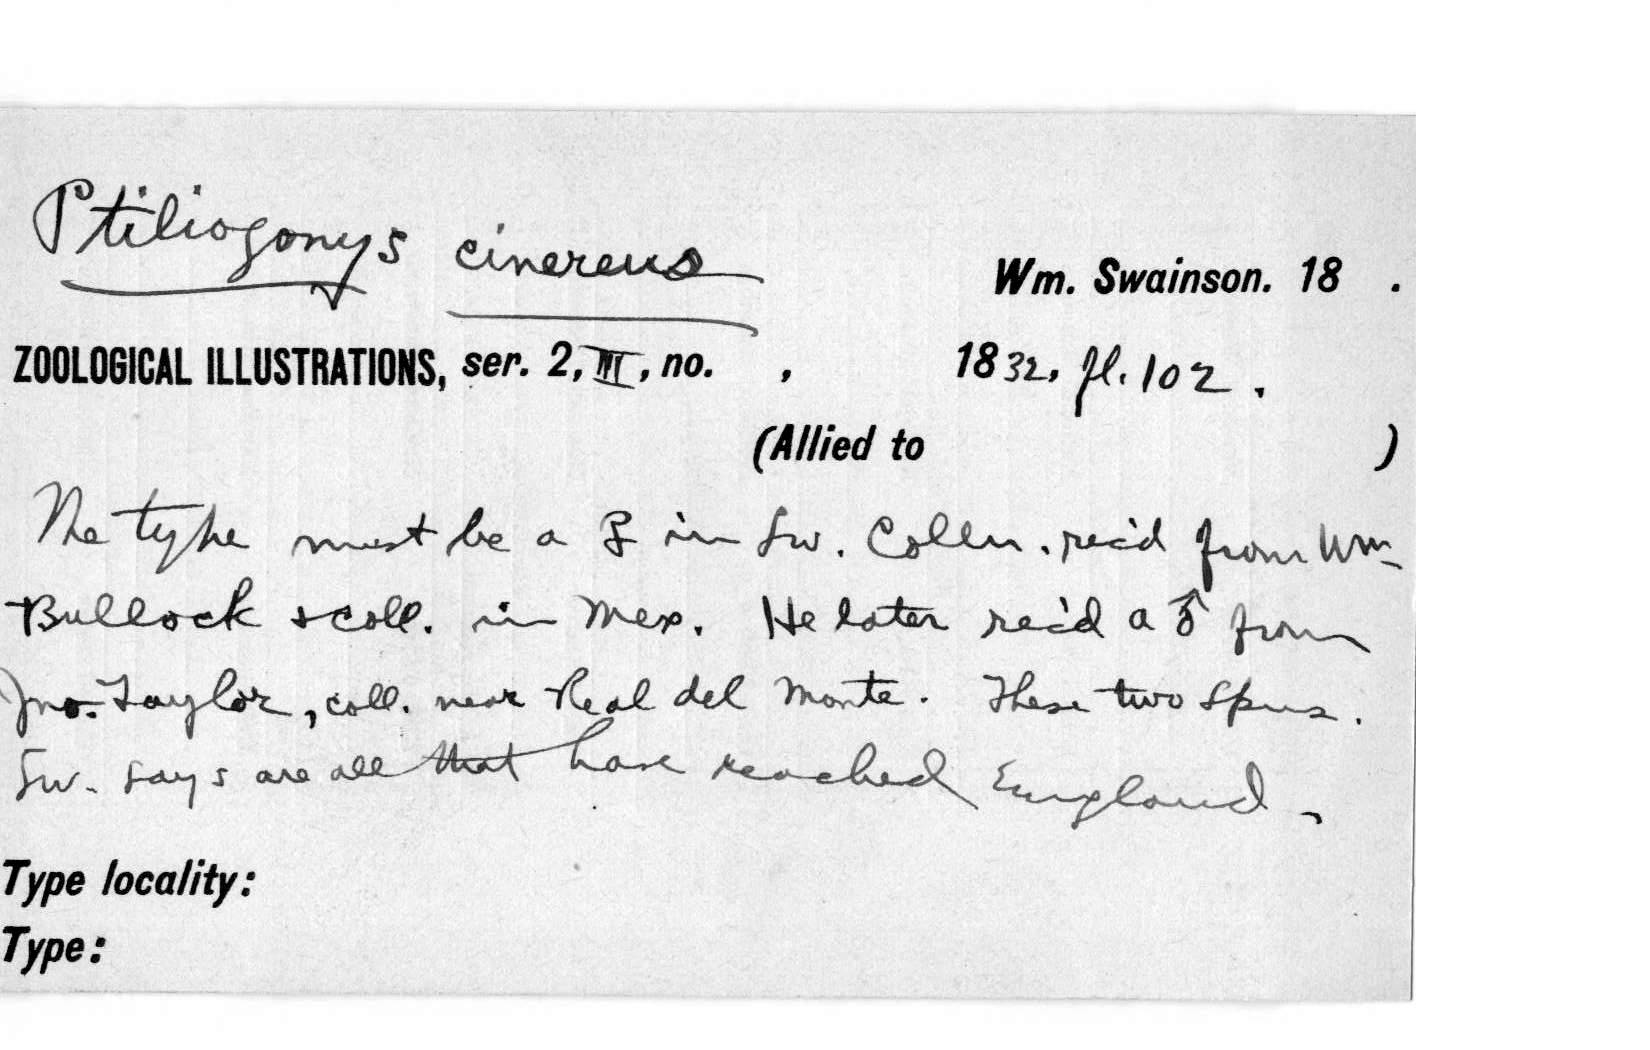 Ptiliogonys cinereus
Wm. Swainson. 18 .
ZOOLOGICAL ILLUSTRATIONS, ser. 2, III, no. , 1832, pl. 102.
(Allied to )
The type must be a ♀ in Sw. Colln. rec'd from Wm.
Bullock & coll. in Mex. He later rec'd a ♂ from
Jno. Taylor, coll. near Real del Monte. These two spms.
Sw. says are all that have reached England.
Type locality:
Type: